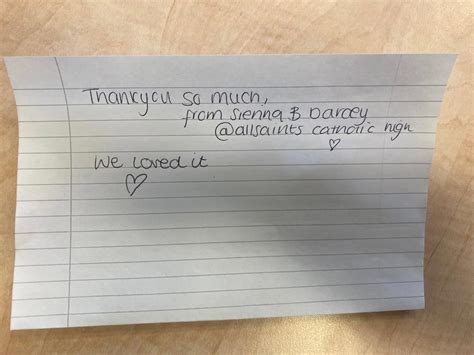 Thankyou so much,
from Sienna & Darcey
@allsaints catholic high
♡
We loved it
♡